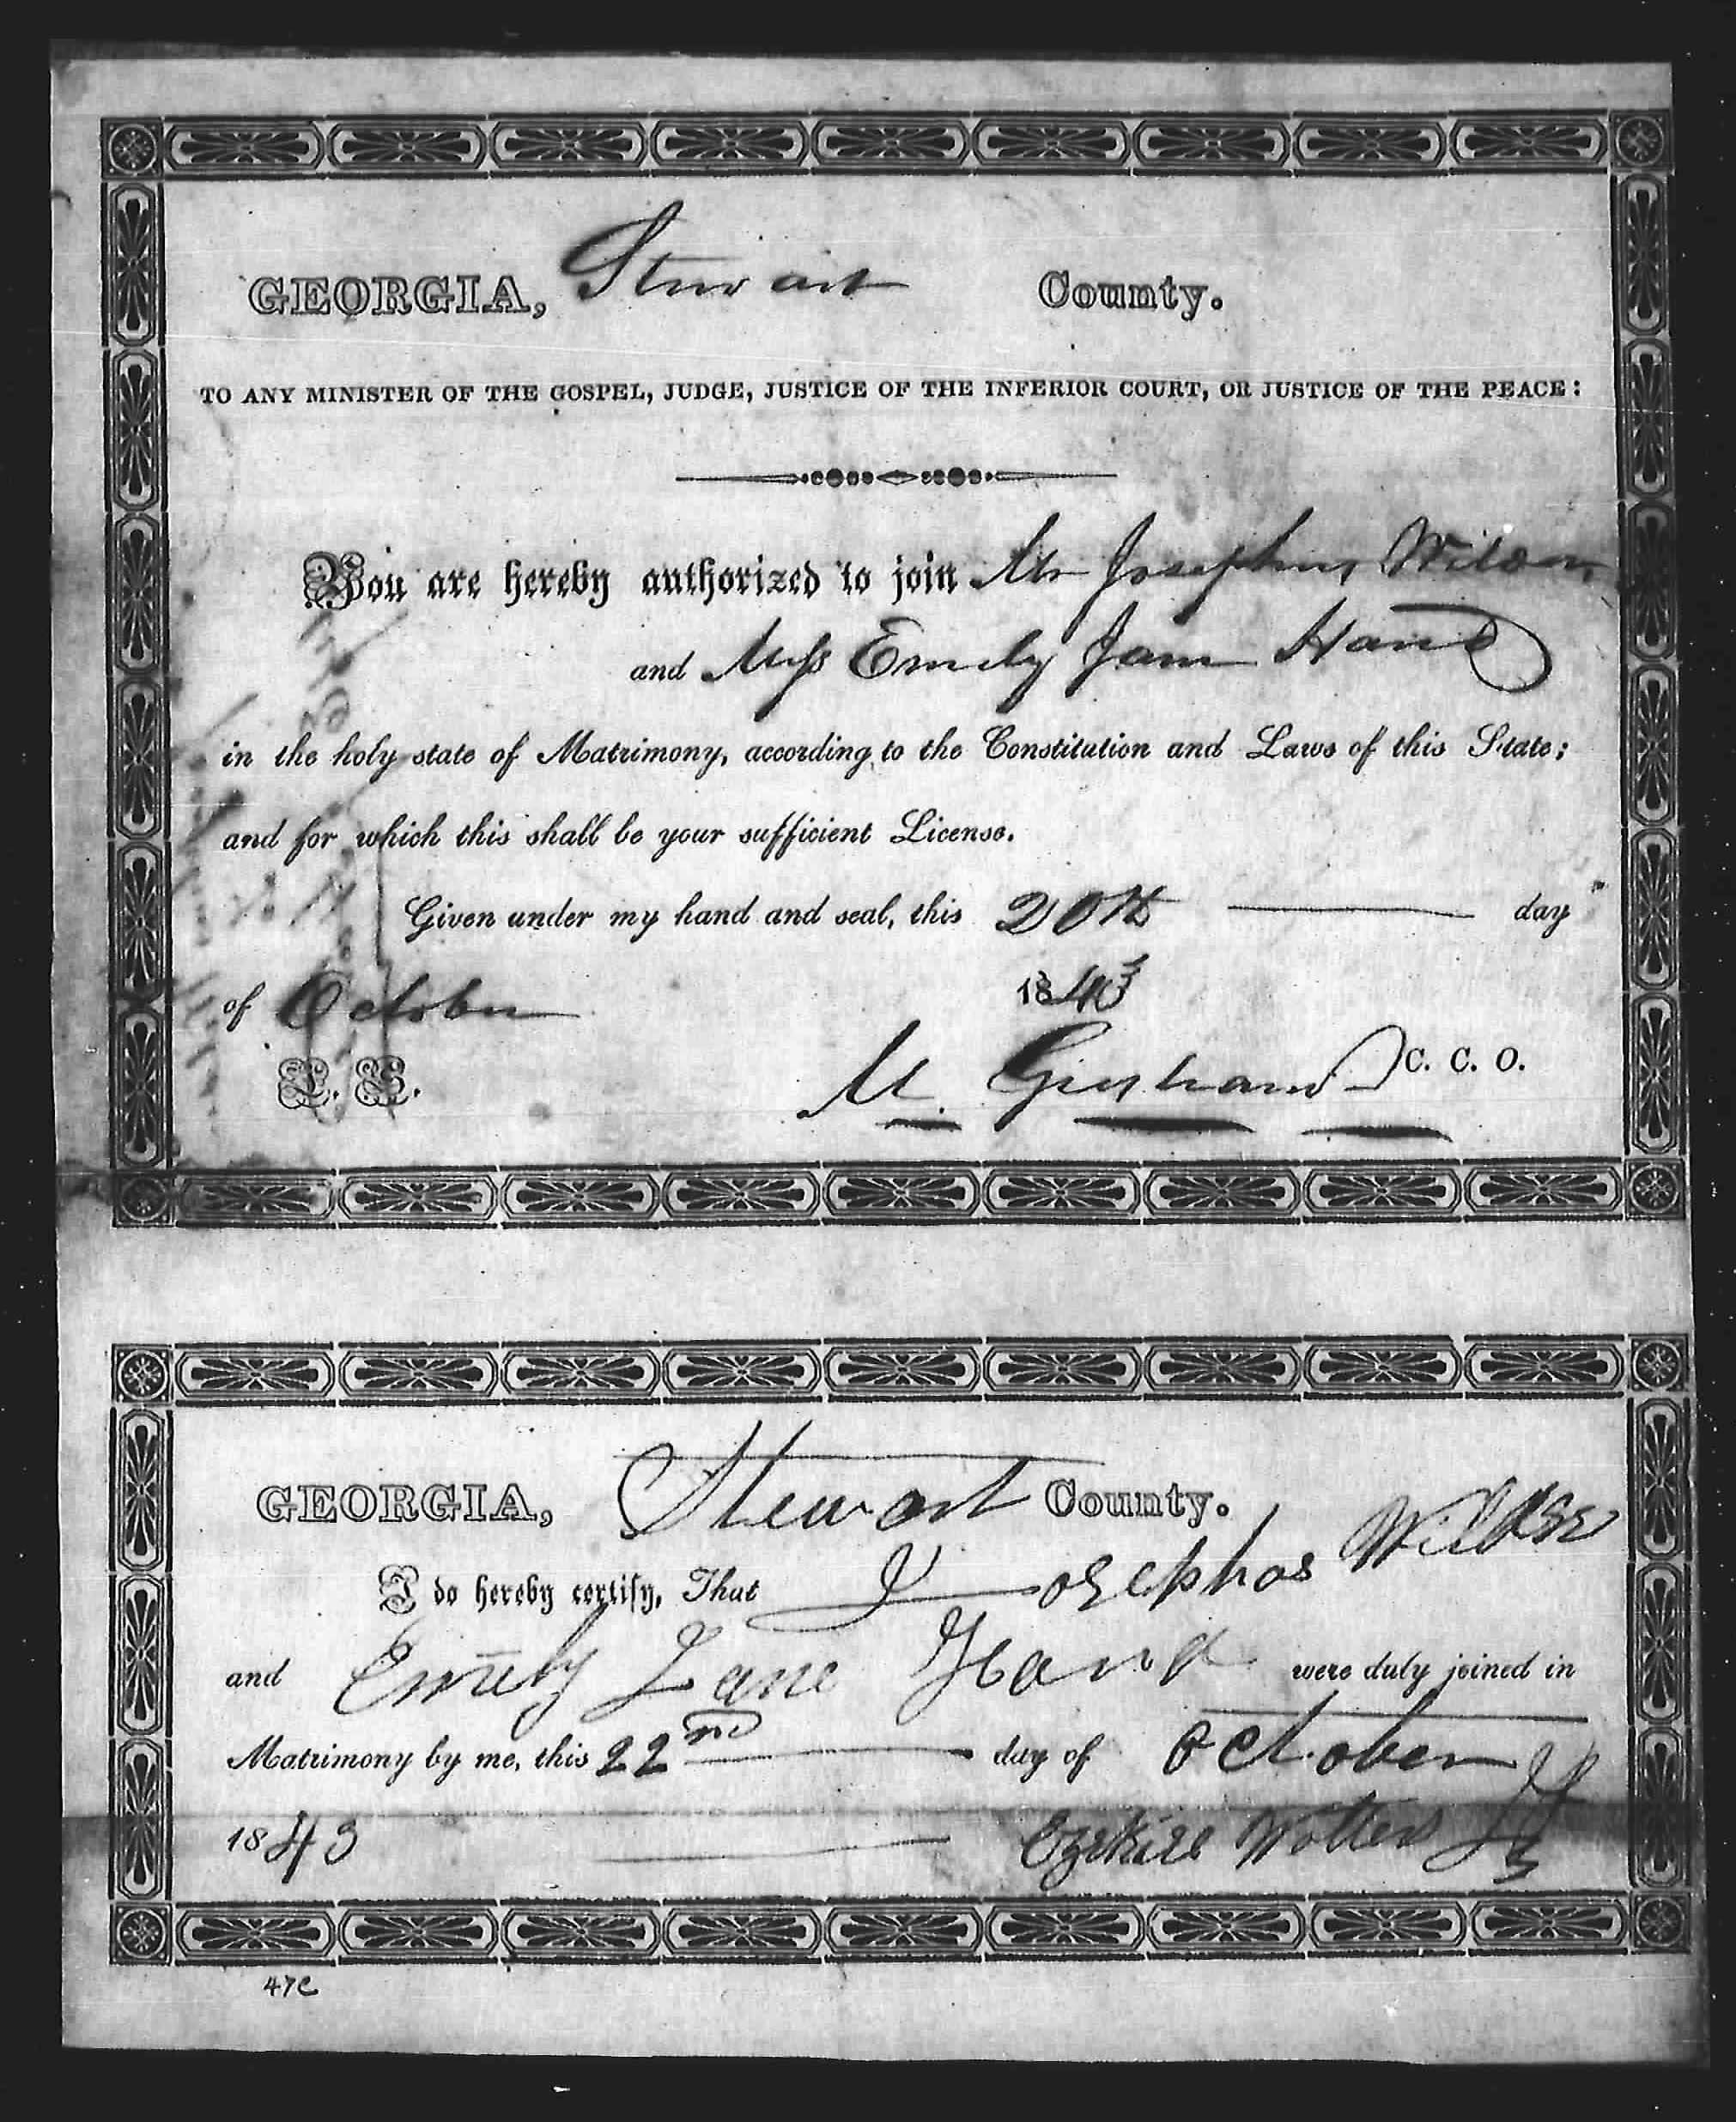 GEORGIA, Stewart County.
TO ANY MINISTER OF THE GOSPEL, JUDGE, JUSTICE OF THE INFERIOR COURT, OR JUSTICE OF THE PEACE:
You are hereby authorized to join Mr Josephus Wilson
and Miss Emily Jane Hand
in the holy state of Matrimony, according to the Constitution and Laws of this State;
and for which this shall be your sufficient License.
Given under my hand and seal, this 20th day
of October 1843
L. S. M. C. C. O.
GEORGIA, Stewart County.
I do hereby certify, That Josephos
and Emily Jane Hand were duly joined in
Matrimony by me, this 22nd day of October
1843 Ezekiel JP
47C